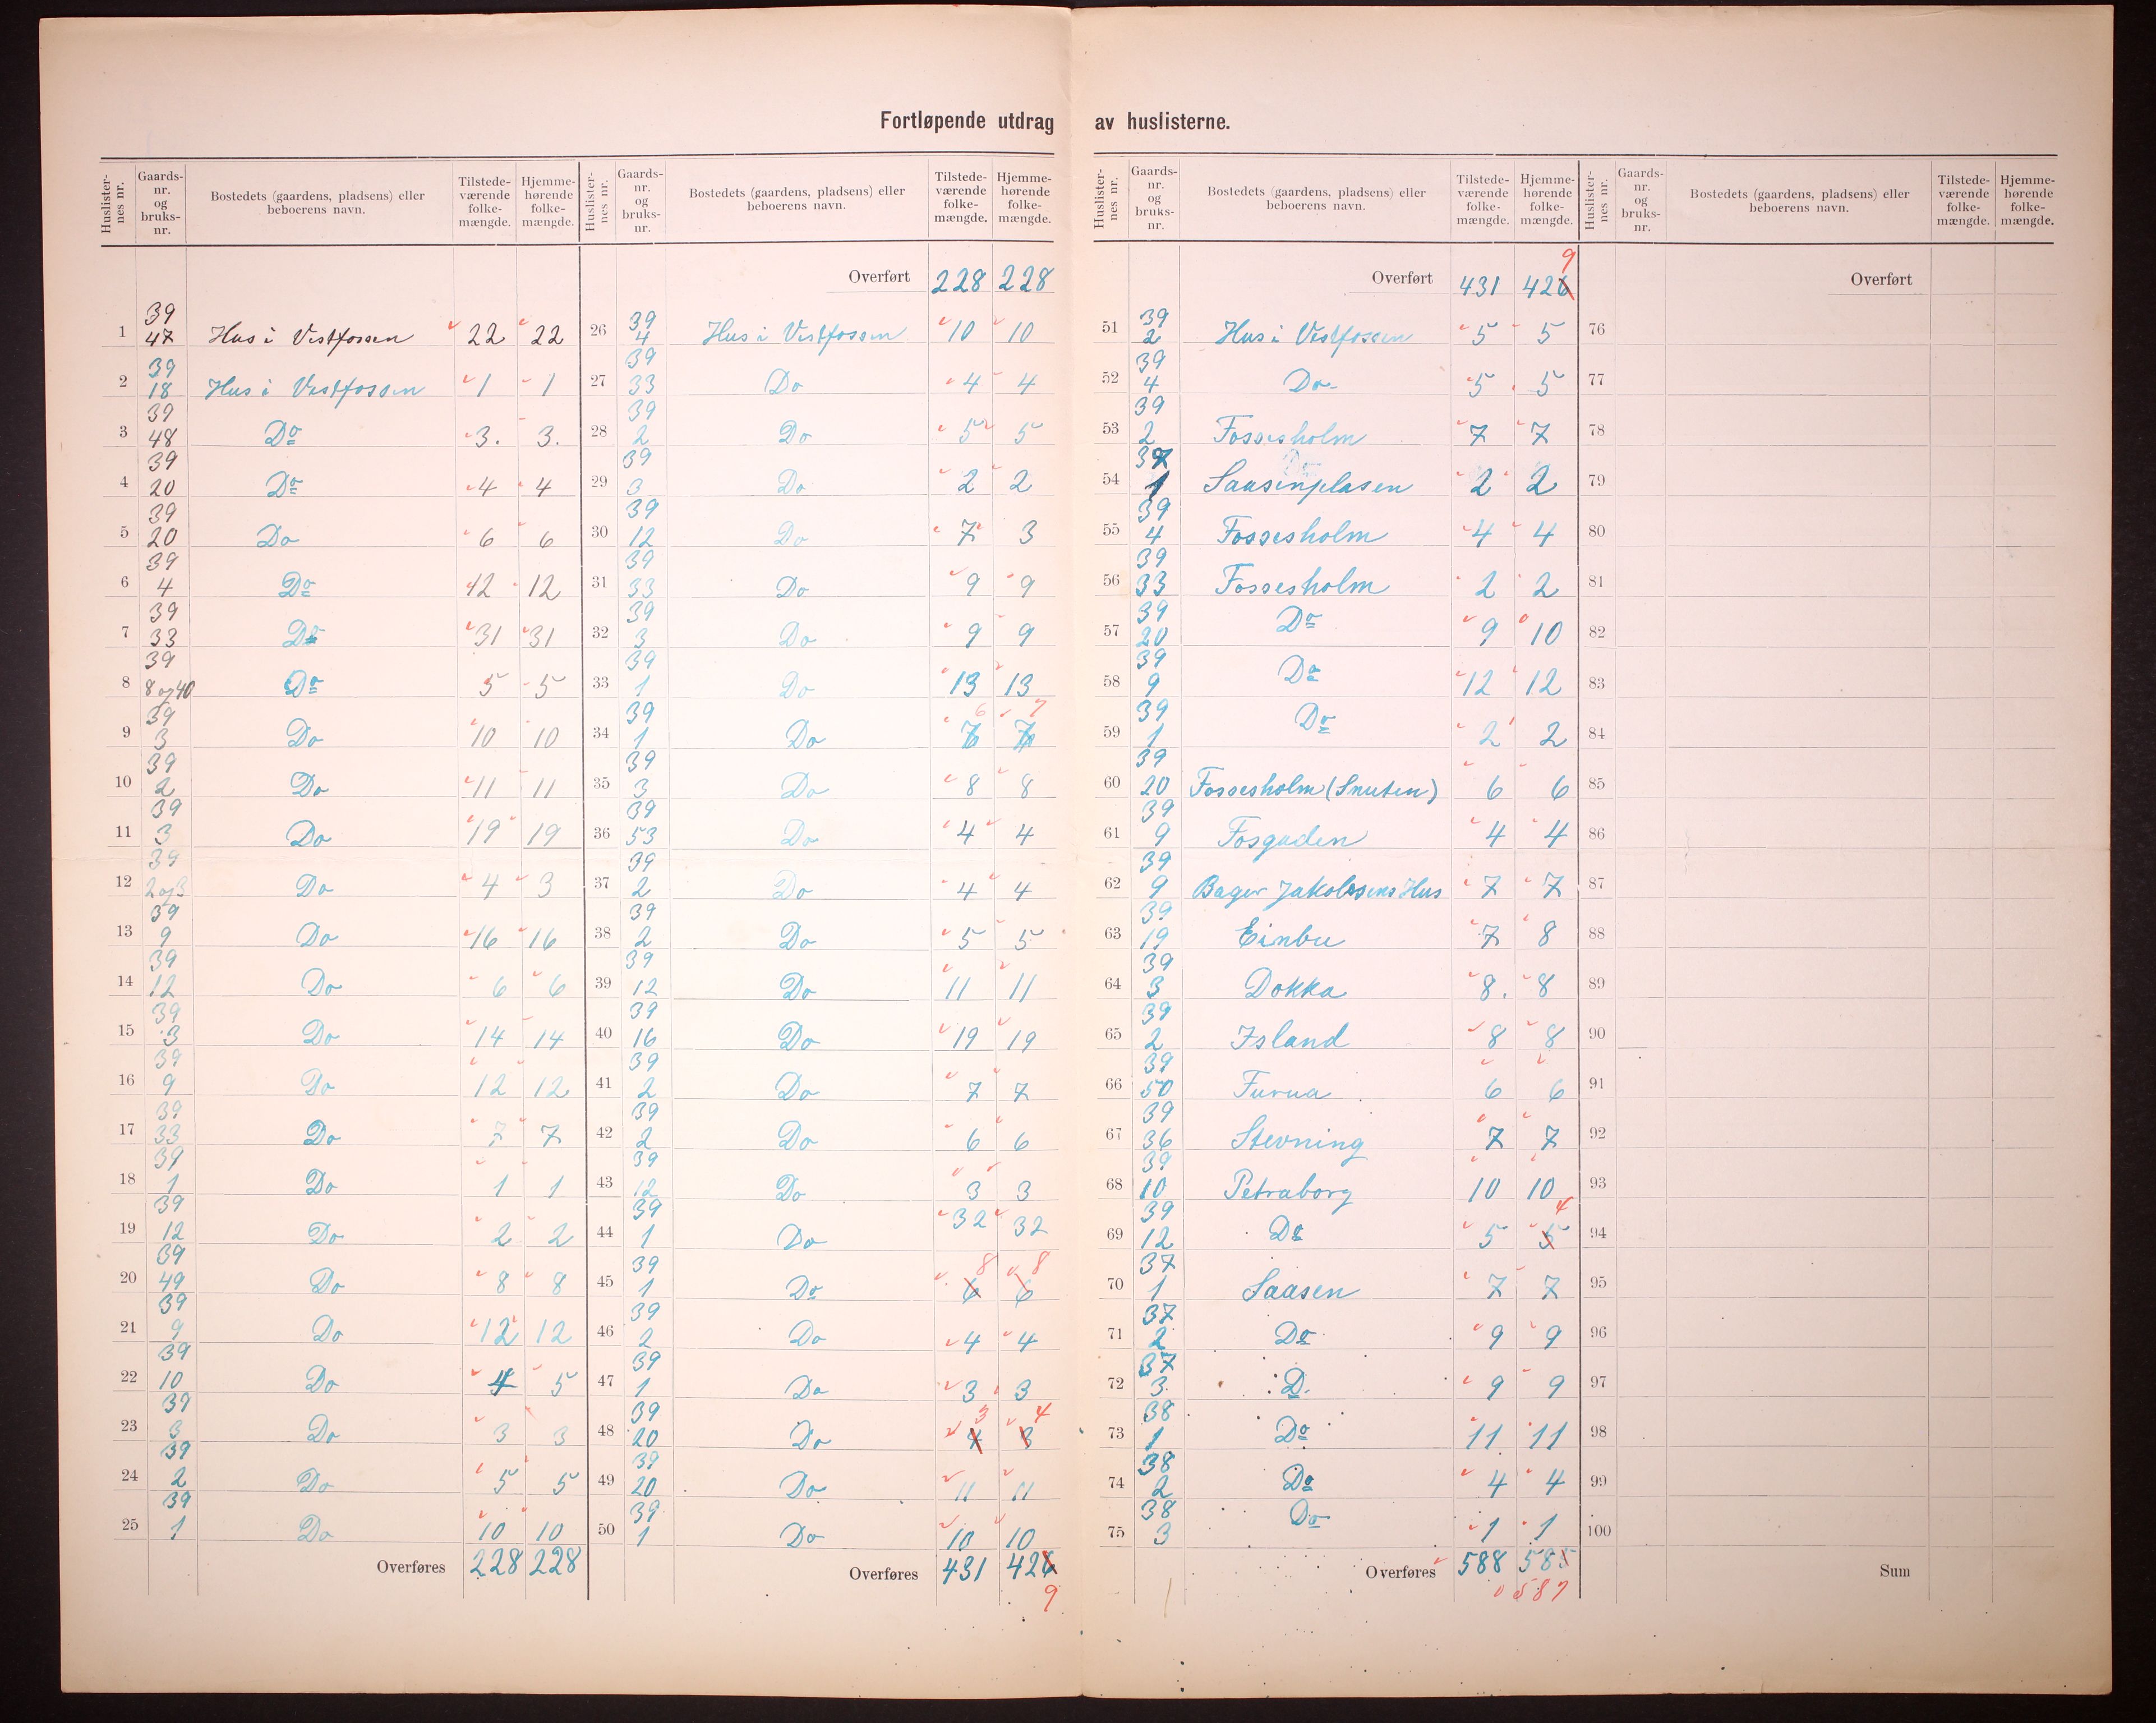 Fortløpende utdrag av huslisterne.
Huslister-nes nr. | Gaards-nr. og bruks-nr. | Bostedets (gaardens, pladsens) eller beboerens navn. | Tilstede-værende folke-mængde. | Hjemme-hørende folke-mængde.
1 39/47 Hus i Vestfossen 22 22
2 39/18 Hus i Vestfossen 1 1
3 39/48 Do 3. 3.
4 39/20 Do 4 4
5 39/20 Do 6 6
6 39/4 Do 12 12
7 39/33 Do 31 31
8 39/8 og 40 Do 5 5
9 39/3 Do 10 10
10 39/2 Do 11 11
11 39/3 Do 19 19
12 39/2 og 3 Do 4 3
13 39/9 Do 16 16
14 39/12 Do 6 6
15 39/3 Do 14 14
16 39/9 Do 12 12
17 39/33 Do 7 7
18 39/1 Do 1 1
19 39/12 Do 2 2
20 39/49 Do 8 8
21 39/9 Do 12 12
22 39/10 Do 4 5
23 39/3 Do 3 3
24 39/2 Do 5 5
25 39/1 Do 10 10
Overføres 228 228
Huslister-nes nr. | Gaards-nr. og bruks-nr. | Bostedets (gaardens, pladsens) eller beboerens navn. | Tilstede-værende folke-mængde. | Hjemme-hørende folke-mængde.
Overført 228 228
26 39/4 Hus i Vestfossen 10 10
27 39/33 Do 4 4
28 39/2 Do 5 5
29 39/3 Do 2 2
30 39/12 Do 7 3
31 39/33 Do 9 9
32 39/3 Do 9 9
33 39/1 Do 13 13
34 39/1 Do 6 7
35 39/3 Do 8 8
36 39/53 Do 4 4
37 39/2 Do 4 4
38 39/2 Do 5 5
39 39/12 Do 11 11
40 39/16 Do 19 19
41 39/2 Do 7 7
42 39/2 Do 6 6
43 39/12 Do 3 3
44 39/1 Do 32 32
45 39/1 Do 6 8 6 8
46 39/2 Do 4 4
47 39/1 Do 3 3
48 39/20 Do 4 3 3 4
49 39/20 Do 11 11
50 39/1 Do 10 10
Overføres 431 426 9
Huslister-nes nr. | Gaards-nr. og bruks-nr. | Bostedets (gaardens, pladsens) eller beboerens navn. | Tilstede-værende folke-mængde. | Hjemme-hørende folke-mængde.
Overført 431 426 9
51 39/2 Hus i Vestfossen 5 5
52 39/4 Do 5 5
53 39/2 Fossesholm 7 7
54 37/1 Saasenplasen 2 2
55 39/4 Fossesholm 4 4
56 39/33 Fossesholm 2 2
57 39/20 Do 9 10
58 39/9 Do 12 12
59 39/1 Do 2 2
60 39/20 Fossesholm (Snuten) 6 6
61 39/9 Fosgaden 4 4
62 39/9 Bager Jakobsens Hus 7 7
63 39/19 Einbu 7 8
64 39/3 Dokka 8. 8
65 39/2 Island 8 8
66 39/50 Furua 6 6
67 39/36 Stevning 7 7
68 39/10 Petraborg 10 10
69 39/12 Do 5 5 4
70 37/1 Saasen 7 7
71 37/2 Do 9 9
72 37/3 D. 9 9
73 38/1 Do 11 11
74 38/2 Do 4 4
75 38/3 Do 1 1
Overføres 588 585
587
Huslister-nes nr. | Gaards-nr. og bruks-nr. | Bostedets (gaardens, pladsens) eller beboerens navn. | Tilstede-værende folke-mængde. | Hjemme-hørende folke-mængde.
Overført
76
77
78
79
80
81
82
83
84
85
86
87
88
89
90
91
92
93
94
95
96
97
98
99
100
Sum